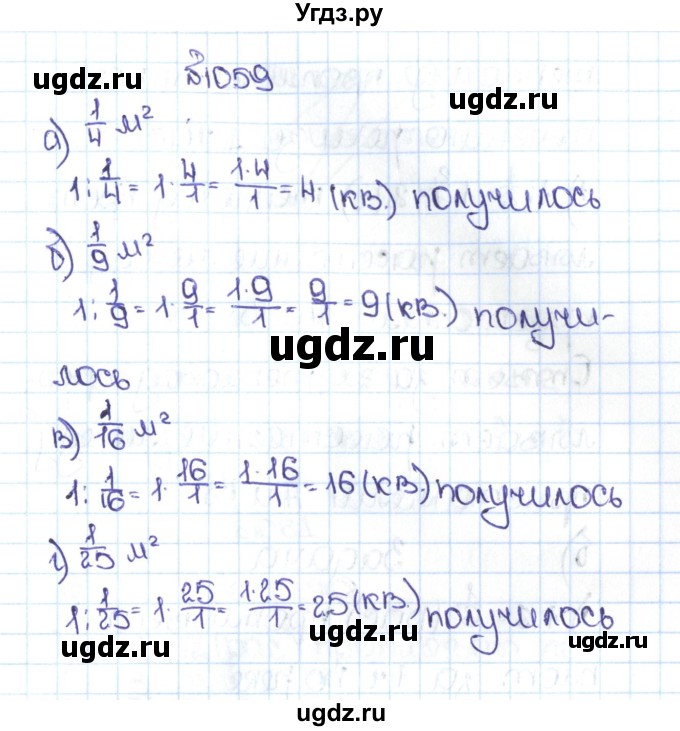 Угдз.ру
№1059
ugdz.ru ugdz.ru
а) 1/4 м²
1:1/4=1·4/1=1·4/1=4·(кв.) получилось
б) 1/9 м²
1:1/9=1·9/1=1·9/1=9/1=9(кв.) получи-
ugdz.ru
лось
в) 1/16 м²
1:1/16=1·16/1=1·16/1=16(кв.) получилось
г) 1/25 м²
1:1/25=1·25/1=1·25/1=25(кв.) получилось
ugdz.ru ugdz.ru ugdz.ru
ugdz.ru